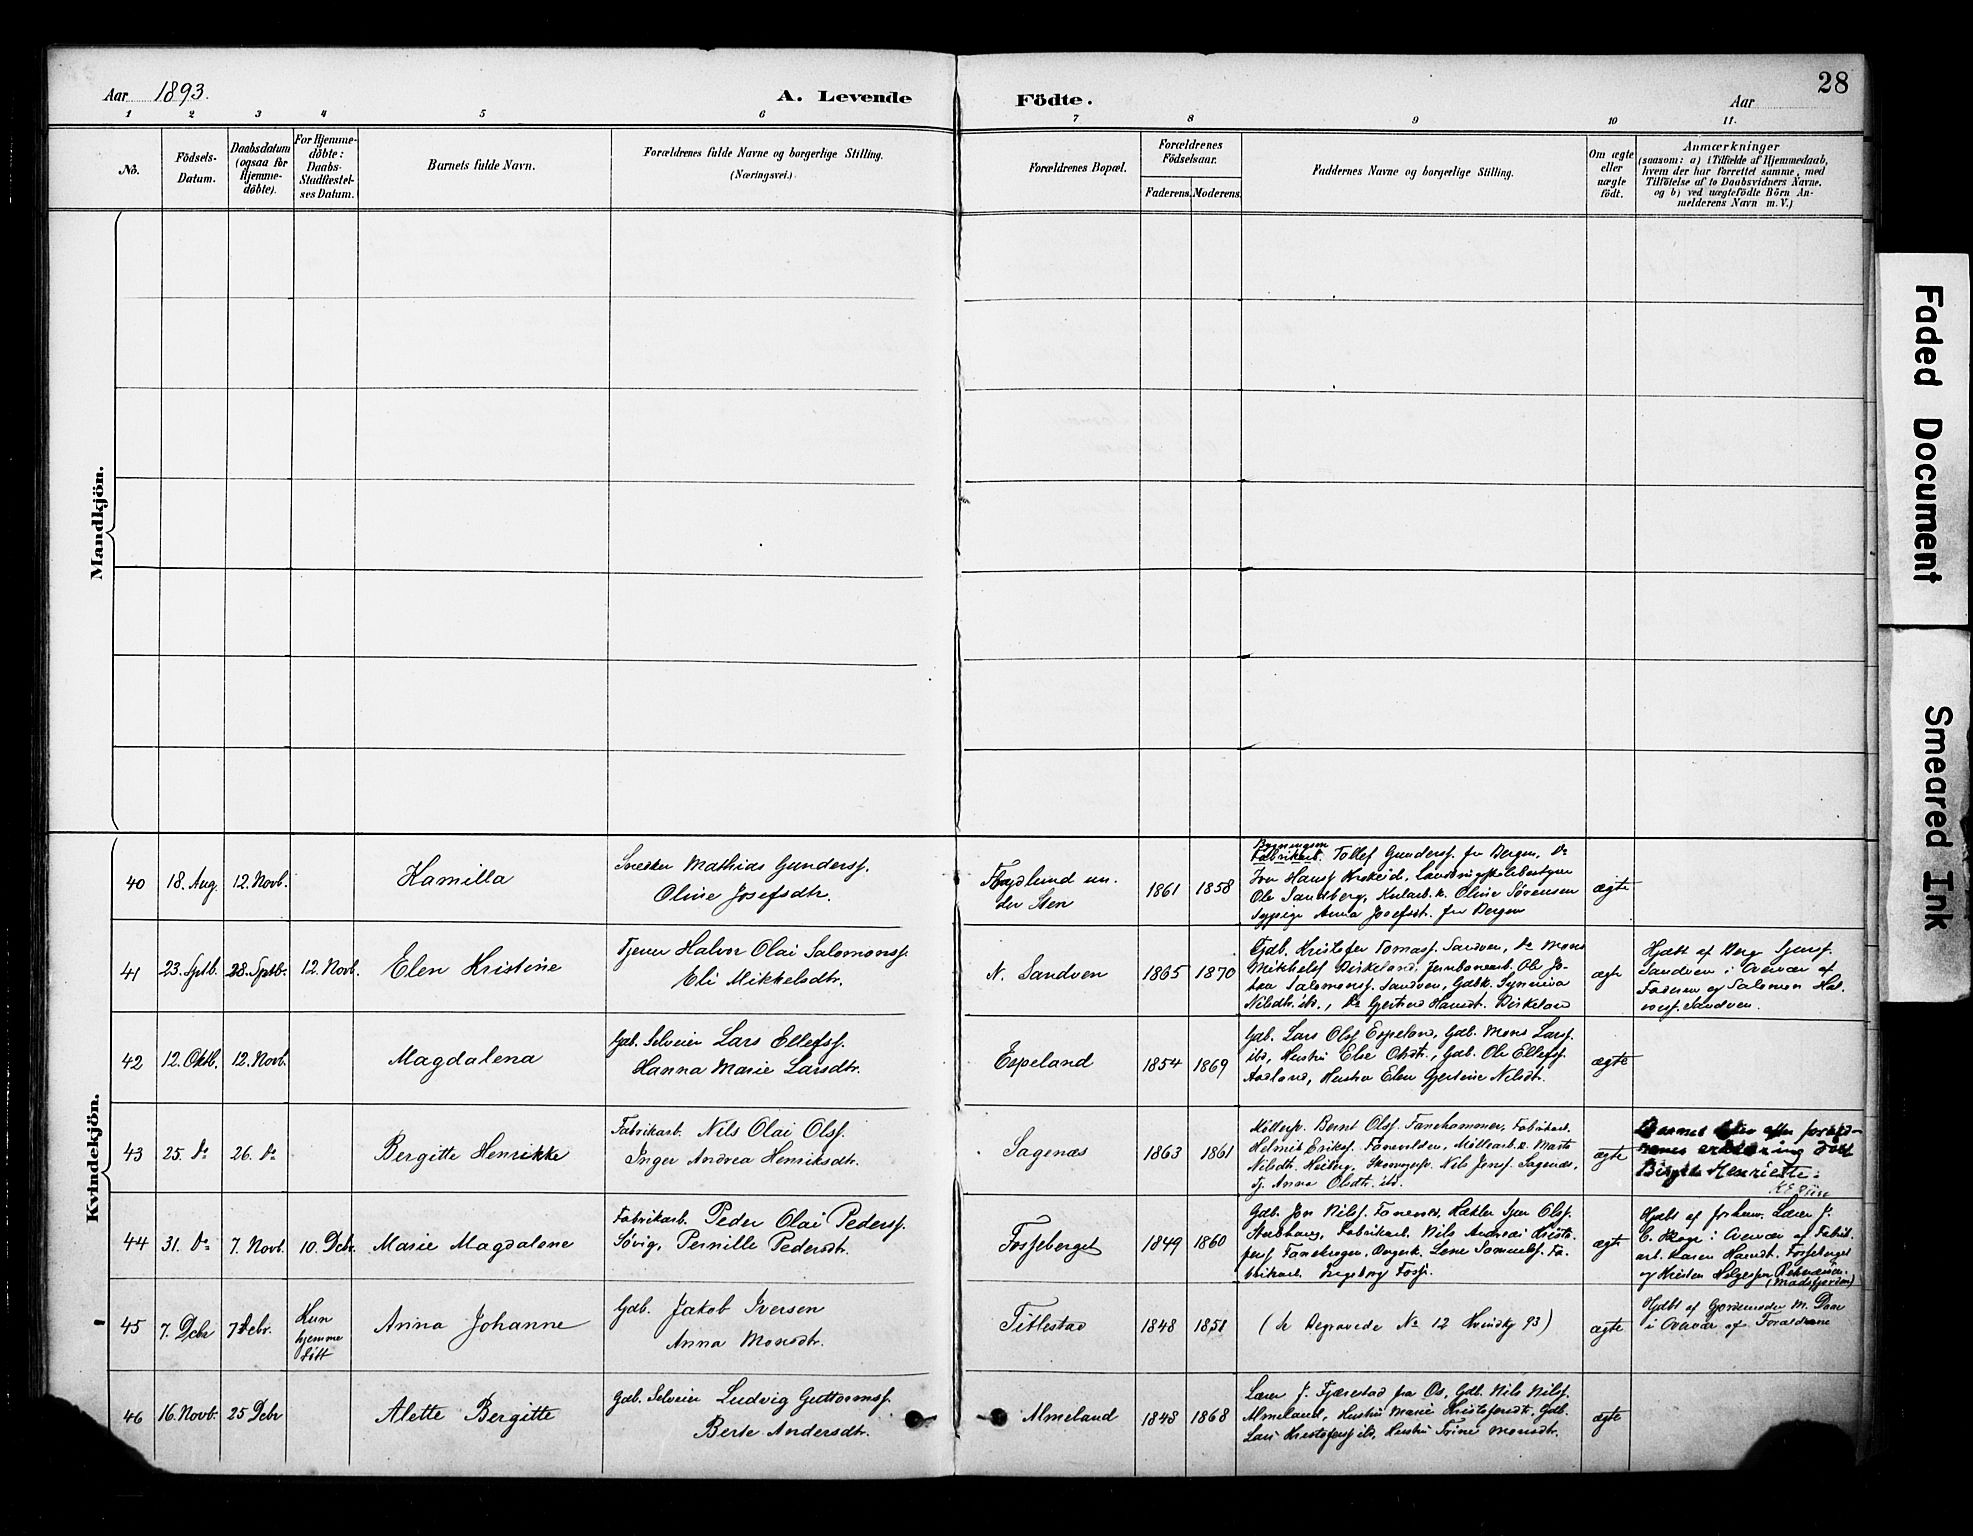 Aar 1893.
A. Levende
Födte.
Aar
28
1 2 3 4 5 6 7 8 9 10 11.
No.
Födsels-
Datum.
Daabsdatum
(ogsaa for
Hjemme-
døbte).
For Hjemme-
døbte:
Daabs-
Stadfæstel-
ses Datum.
Barnets fulde Navn.
Forældrenes fulde Navne og borgerlige Stilling.
(Næringsvei.)
Forældrenes Bopæl.
Forældrenes
Födselsaar.
Faderens.
Moderens.
Faddernes Navne og borgerlige Stilling.
Om ægte
eller
uægte
födt.
Anmærkninger
(saasom: a) i Tilfælde af Hjemmedaab,
hvem der har forrettet samme, med
Tilföielse af to Daabsvidners Navne.
og b) ved uægtefödte Börn An-
melderens Navn m. V.)
Mandkjön.
Kvindekjön.
40 18. Aug. 12. Novb.
Kamilla
Snedker Mathias Gunders.
Oline Josefsdtr.
un-
der Sten
1861 1858
Fabrikarb. Tollef Gunders. fra Bergen, Do
Ole Sandberg, Oline Sørensen
Sypige Anna Josefsdt. fra Bergen
ægte
41 23. Sptb. 28. Sptb. 12. Novb.
Elen Kristine
Tjener Halvor Olai Salomons.
Eli Mikkelsdtr.
N. Sandven
1865 1870
Gdb. Kristofer Tomas. Sandven, Do Mons
Mikkels. Birkeland, Jernbanearb. Ole Jo-
han Salomons. Sandven, Gdbk. Synneva
Nilsdtr. ibd., Do Gjertrud Hansdt. Birkeland
ægte
Hjdbt af Berg
Sandven i Overvær af
Faderen og Salomon Hal-
vors. Sandven.
42 12. Oktb. 12. Novb.
Magdalena
Gdb. Selveier Lars Ellefs.
Hanna Marie Larsdtr.
Espeland
1854 1869
Gdb. Lars Ols. Espeland, Gdb. Mons Lars.
ibd, Hustru Else Olsdt., Gdb. Ole Ellefs.
Aadland, Hustru Elen Gjertine Nilsdtr.
ægte
43 25. Do 26. Do
Bergitte Henrikke
Fabrikarb. Nils Olai Ols.
Inger Andrea Henriksdtr.
Sagenæs
1863 1861
Bernt Ols. Fanehammer, Fabrikarb.
Helmik Eriks. Marta
Nilsdtr. Nils Jens. Sagenæs,
Tj. Anna Olsdtr. ibd.
ægte
Barnet blev efter foræld-
renes erklæring døbt
Birgitte Henriette.
44 31. Do 7. Novb. 10. Debr.
Marie Magdalene
Fabrikarb. Peder Olai Peders.
Søvig, Pernille Pedersdtr.
Fosseberget
1849 1860
Gdb. Jon Nils. Ols.
Fabrikarb. Nils Andreas Kristo-
fers. Lene Samuels. Fa-
brikarb. Ingeborg Foss.
ægte
Hjdbt af forhenv. Lærer J.
C. Skage i Overvær af Fabrik-
arb. Karen Hansdt. Fosseberget
og Kristen Helgesen
45 7. Debr 7 Debr.
Hun
hjemme
døbt
Anna Johanne
Gdb. Jakob Iversen
Anna Monsdtr.
Titlestad
1848 1851
(se Begravede No 12 Kvindkj 93)
ægte
Hjdbt af Gjordemoder M. Daae
i Overvær af Forældrene
46 16. Novb. 25 Debr
Alette Bergitte
Gdb. Selveier Ludvig Guttorms.
Berte Andersdtr.
Almeland
1848 1868
Lærer J. Tjærestad fra Os, Gdb. Nils Nils.
Almeland, Hustru Marie Kristofersdt, Gdb.
Lars Kristofers. ibd, Hustru Trine Monsdtr.
ægte
Faded Document
Smeared Ink